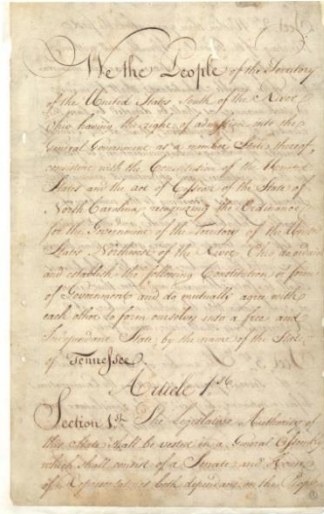 We the People of the Territory
of the United States South of the River
Ohio having the right of admission into the
General Government as a member State thereof,
consistent with the Constitution of the United
States and the act of Cession of the State of
North Carolina, recognizing the Ordinance
for the Government of the Territory of the United
States Northwest of the River Ohio do ordain
and establish the following Constitution or form
of Government and do mutually agree with
each other to form ourselves into a free and
Independant State, by the name of the State
of Tennessee
Article 1st
Section 1.st The Legislative Authority of
this State shall be vested in a General Assembly
which shall consist of a Senate and House
of Representatives both dependant on the People